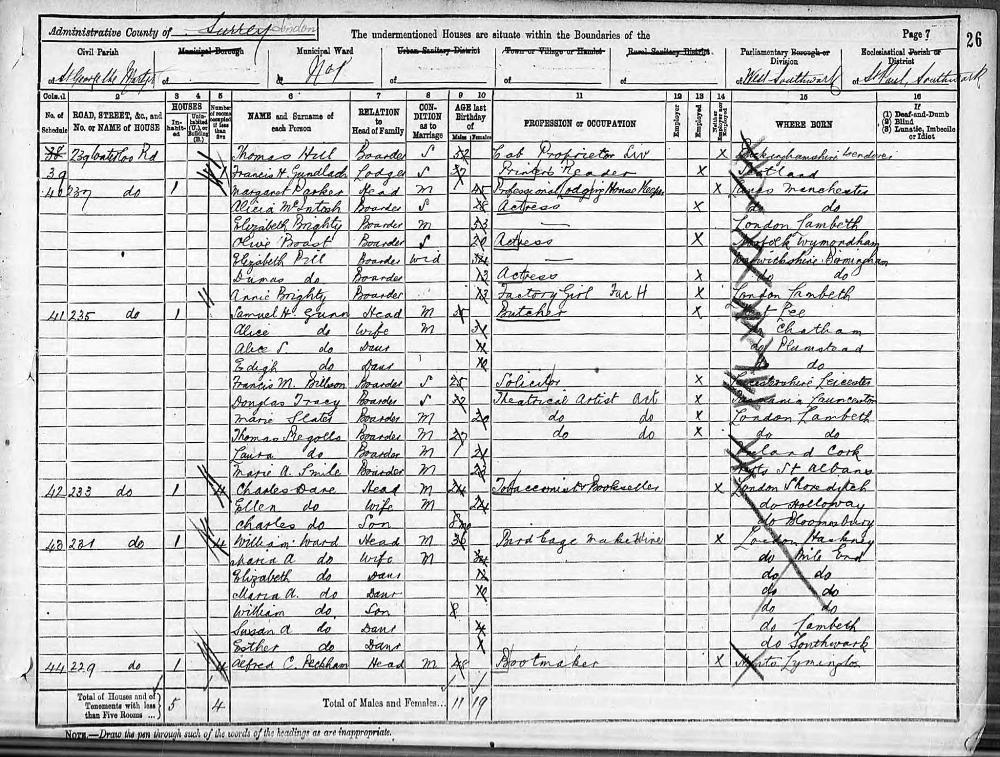 Administrative County of Surrey London The undermentioned Houses are situate within the Boundaries of the Page 7 26
Civil Parish Municipal Borough Municipal Ward Urban Sanitary District Town or Village or Hamlet Rural Sanitary District Parliamentary Borough or Division Ecclesiastical Parish or District
of St George the Martyr of of of of of of West Southwark of St Paul, Southwark
Cols. 1 2 3 4 5 6 7 8 9 10 11 12 13 14 15 16
No. of Schedule ROAD, STREET, &c., and No. or NAME of HOUSE HOUSES Inhabited Uninhabited (U.), or Building (B.) Number of rooms occupied if less than five NAME and Surname of each Person RELATION to Head of Family CONDITION as to Marriage AGE last Birthday of Males Females PROFESSION or OCCUPATION Employer Employed Neither Employer nor Employed WHERE BORN If (1) Deaf-and-Dumb (2) Blind (3) Lunatic, Imbecile or Idiot
239 Waterloo Rd Thomas Hill Boarder S 52 Cab Proprietor X Buckinghamshire
39 1 Francis H. Gundlach Lodger S 37 Printers Reader X Scotland
40 237 do 1 Margaret Parker Head M 45 Professional Lodging House Keeper X Lancs Manchester
Alicia McIntosh Boarder S 18 Actress X do do
Elizabeth Brighty Boarder M 53 — London Lambeth
Olive Boast Boarder S 20 Actress X Norfolk Wymondham
Elizabeth Pill Boarder Wid 34 — Warwickshire Birmingham
do Boarder 13 Actress X do do
Annie Brighty Boarder 13 Factory Girl X London Lambeth
41 235 do 1 Samuel H. Gunn Head M 35 Butcher Kent Lee
Alice do Wife M 31 do Chatham
Alice S. do Daur 11 do Plumstead
Edigh do Daur 10 do do
Francis M. Billson Boarder S 25 Solicitor X Leicestershire Leicester
Douglas Tracy Boarder S 32 Theatrical Artist X Tasmania Launceston
Marie Slater Boarder M 20 do do X London Lambeth
Thomas Boarder M 27 do do X do do
Laura do Boarder M 21 Ireland Cork
Marie A. Smile Boarder M 23 Herts St Albans
42 233 do 1 4 Charles Dare Head M 24 Tobacconist & Bookseller X London Shoreditch
Ellen do Wife M 24 do Holloway
Charles do Son 8mo do Bloomsbury
43 231 do 1 4 William Ward Head M 36 Bird Cage Maker Wire X London Hackney
Maria A do Wife M 34 do Mile End
Elizabeth do Daur 12 do do
Maria A. do Daur 10 do do
William do Son 8 do do
Susan A do Daur 4 do Lambeth
Esther do Daur 1 do Southwark
44 229 do 1 4 Alfred C. Peckham Head M 48 Bootmaker X Hants Lymington
Total of Houses and of Tenements with less than Five Rooms ... 5 4 Total of Males and Females... 11 19
NOTE.—Draw the pen through such of the words of the headings as are inappropriate.